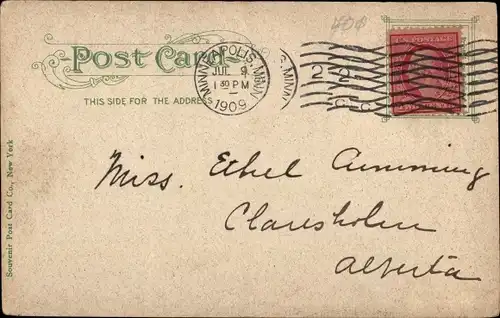 40¢
Post Card
THIS SIDE FOR THE ADDRESS
MINNEAPOLIS, MINN.
JUL 9
1 30 PM
1909
S. MINN
U.S. POSTAGE
Miss. Ethel Cumming
Claresholm
Alberta
Souvenir Post Card Co., New York